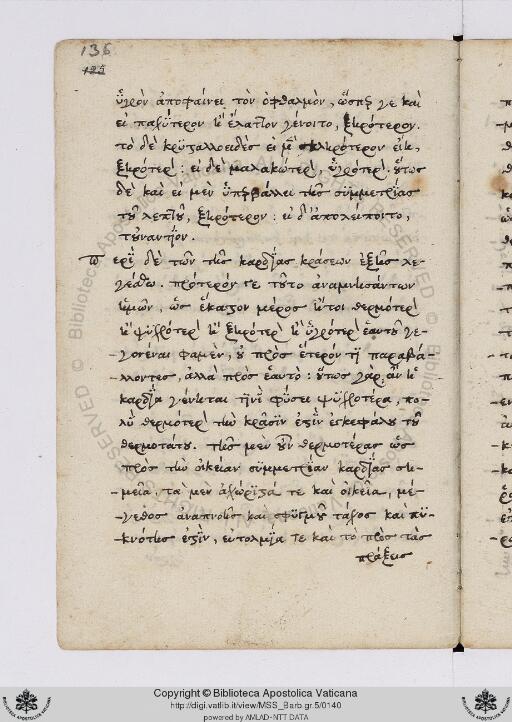 136
125
ὑγρὸν ἀποφαίνει τὸν ὀφθαλμὸν, ὥσπερ γε καὶ
εἰ παχύτερον ἢ ἔλαττον γένοιτο, ξηρότερον.
τὸ δὲ κρυσταλλοειδὲς εἰ μὲν σκληρότερον εἴη,
ξηρότερον: εἰ δὲ μαλακώτερον, ὑγρότερον. οὕτως
δὲ καὶ εἰ μὲν ὑπερβάλλει τῆς συμμετρίας
τοῦ λεπτοῦ, ξηρότερον: εἰ δ' ἀπολείποιτο,
τοὐναντίον.
Περὶ δὲ τῶν τῆς καρδίας κράσεων ἑξῆς λε-
γέσθω. πρότερόν γε τοῦτο ἀναμνησάντων
ἡμῶν, ὡς ἕκαστον μέρος ἤτοι θερμότερον
ἢ ψυχρότερον ἢ ξηρότερον ἢ ὑγρότερον ἑαυτοῦ γε-
-γονέναι φαμὲν, οὐ πρὸς ἕτερόν τι παραβάλ-
-λοντες, ἀλλὰ πρὸς ἑαυτό: οὕτως γὰρ ἂν ἡ
καρδία γένηται τινὶ φύσει ψυχροτέρα, πο-
λὺ θερμοτέρα τὴν κρᾶσιν ἐστὶν ἐγκεφάλου τοῦ
θερμοτάτου. τῆς μὲν οὖν θερμοτέρας ὡς
πρὸς τὴν οἰκείαν συμμετρίαν καρδίας ση-
-μεῖα, τὰ μὲν ἀχώριστά τε καὶ οἰκεῖα, μέ-
-γεθος ἀναπνοῆς καὶ σφυγμοῦ τάχος καὶ πυ-
-κνότης ἐστὶν, εὐτολμία τε καὶ τὸ πρὸς τὰς
πράξεις
Copyright © Biblioteca Apostolica Vaticana
http://digi.vatlib.it/view/MSS_Barb.gr.5/0140
powered by AMLAD-NTT DATA